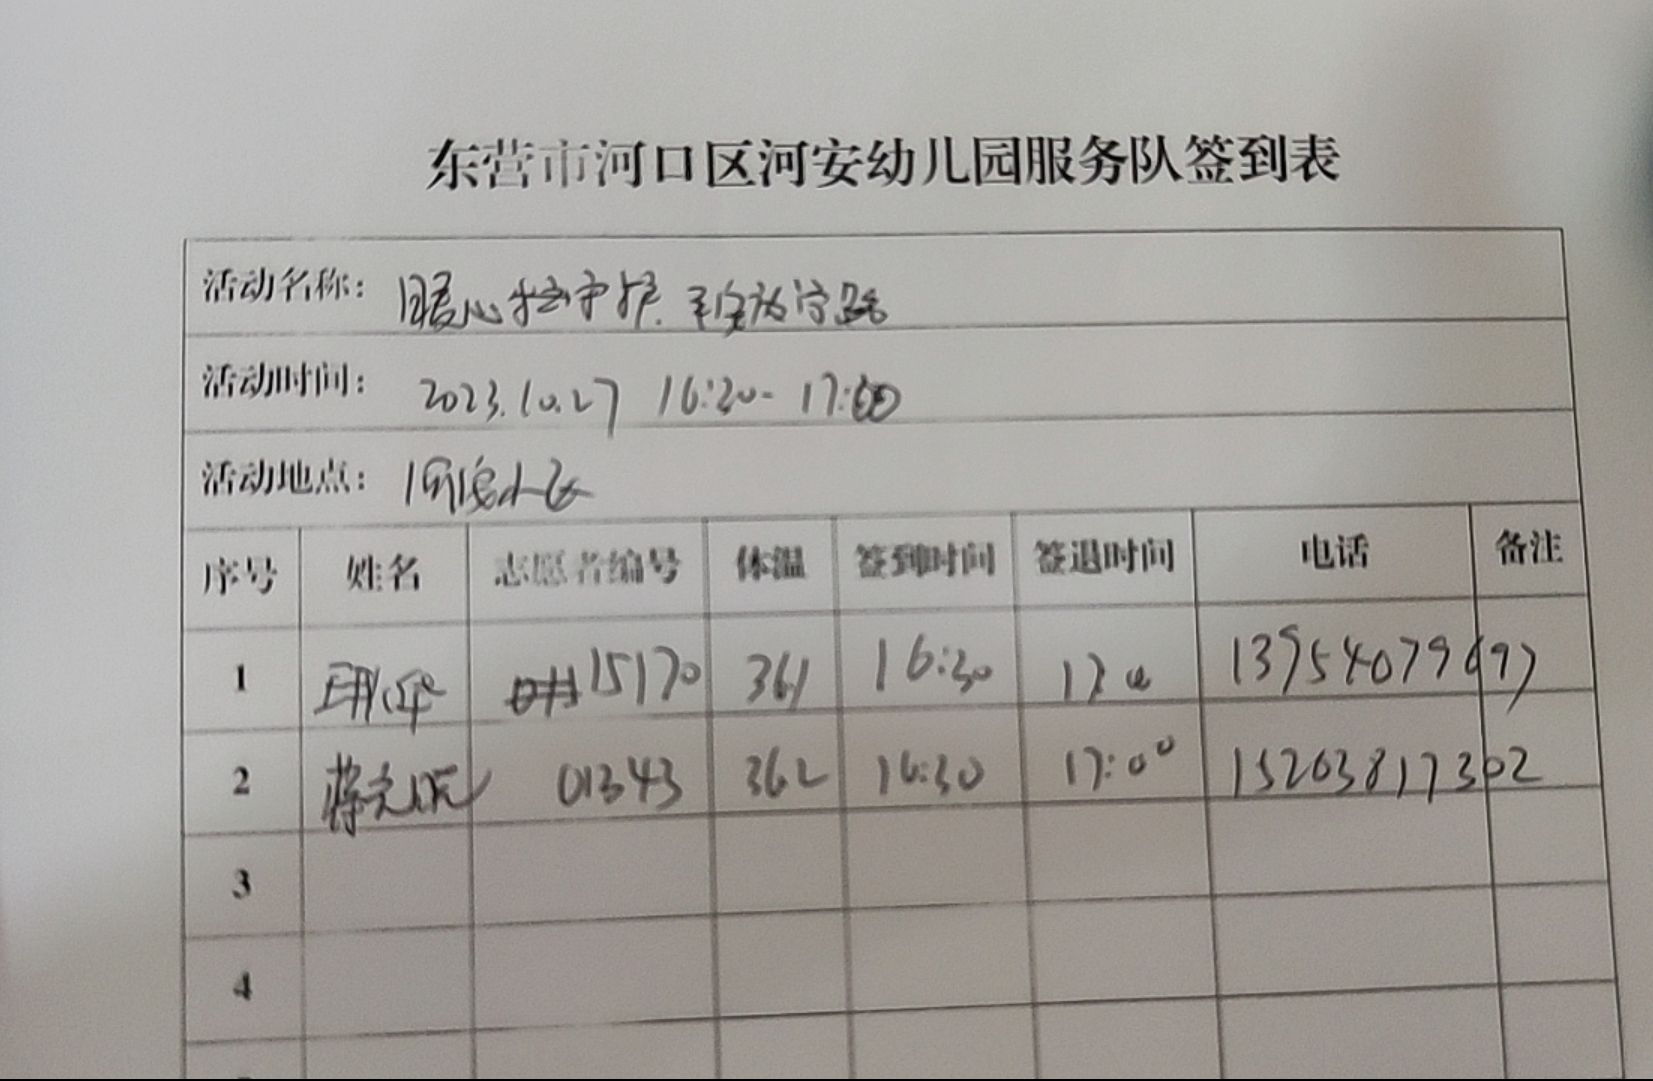 东营市河口区河安幼儿园服务队签到表
活动名称: 暖心 守护
活动时间: 2023.10.27 16:30-17:00
活动地点:
序号 姓名 志愿者编号 体温 签到时间 签退时间 电话 备注
1 15170 361 16:30 17:00 13954079697
2 01343 362 16:30 17:00 15263817302
3
4